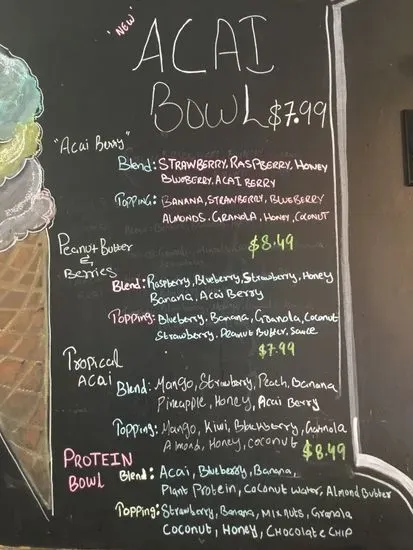 "NEW"
ACAI
BOWL $7.99
"Acai Berry"
Blend: STRAWBERRY, RASPBERRY, HONEY
BLUEBERRY, ACAI BERRY
TOPPING: BANANA, STRAWBERRY, BLUEBERRY
ALMONDS, GRANOLA, HONEY, COCONUT
Peanut Butter
&
Berries
$8.49
Blend: Raspberry, Blueberry, Strawberry, Honey
Banana, Acai Berry
Topping: Blueberry, Banana, Granola, Coconut
Strawberry, Peanut Butter, Sauce
Tropical
Acai
$7.99
Blend: Mango, Strawberry, Peach, Banana
Pineapple, Honey, Acai Berry
Topping: Mango, Kiwi, Blackberry, Granola
Almond, Honey, Coconut
PROTEIN
BOWL
$8.49
Blend: Acai, Blueberry, Banana,
Plant Protein, Coconut Water, Almond Butter
Topping: Strawberry, Banana, Mix nuts, Granola
Coconut, Honey, Chocolate Chip